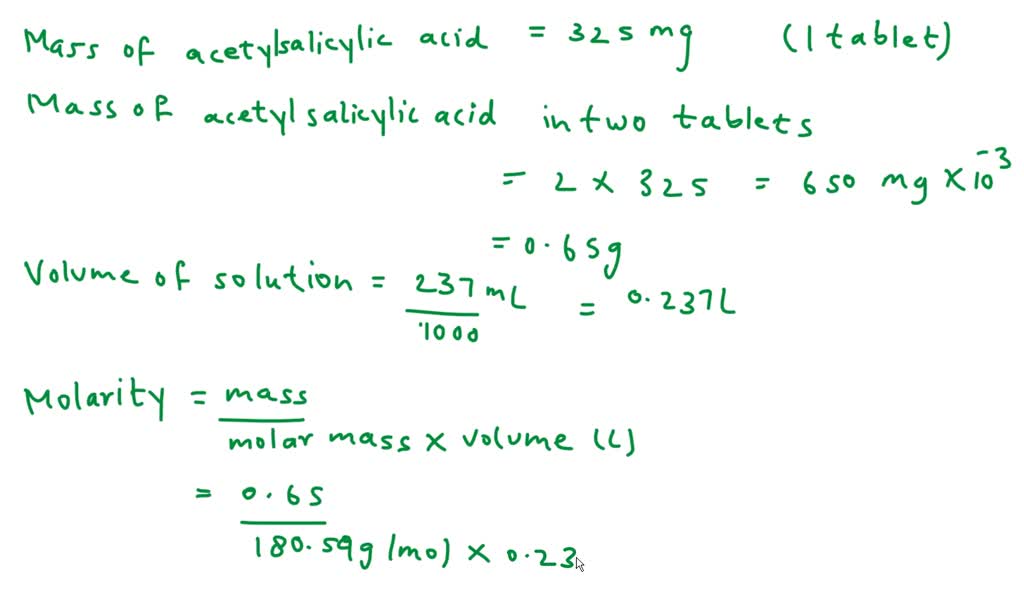 Mass of acetylsalicylic acid = 325 mg (1 tablet)
Mass of acetylsalicylic acid in two tablets
= 2 × 325 = 650 mg × 10⁻³
= 0.65g
Volume of solution = 237 mL / 1000 = 0.237L
Molarity = mass
molar mass × volume (L)
= 0.65
180.59g/mol × 0.23